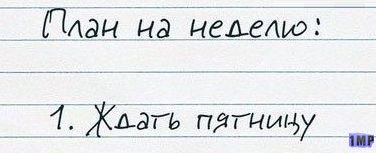 План на неделю:
1. Ждать пятницу
1MP